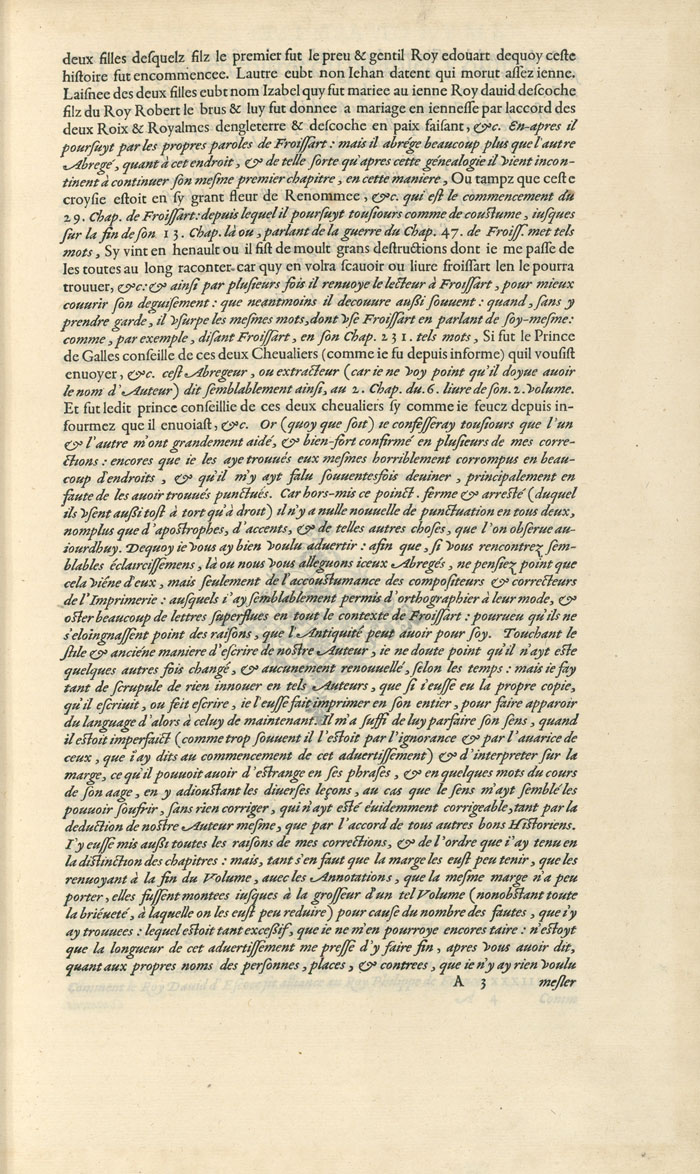 deux filles deſquelz filz le premier fut le preu & gentil Roy edouart dequoy ceſte
hiſtoire fut encommencee. Lautre eubt non Iehan datent qui morut aſſez ienne.
Laiſnee des deux filles eubt nom Izabel quy fut mariee au ienne Roy dauid deſcoche
filz du Roy Robert le brus & luy fut donnee a mariage en ienneſſe par laccord des
deux Roix & Royalmes dengleterre & deſcoche en paix faiſant, &c. En-apres il
pourſuyt par les propres paroles de Froiſſart : mais il abrége beaucoup plus que l'autre
Abregé, quant à cet endroit, & de telle ſorte qu'apres cette généalogie il vient incon-
tinent à continuer ſon meſme premier chapitre, en cette maniere, Ou tampz que ceſt e
croyſie eſtoit en ſy grant fleur de Renommee, &c. qui eſt le commencement du
29. Chap. de Froiſſart: depuis lequel il pourſuyt touſiours comme de couſtume, iuſques
ſur la fin de ſon 13. Chap. là ou, parlant de la guerre du Chap. 47. de Froiſſ. met tels
mots, Sy vint en henault ou il fiſt de moult grans deſtructions dont ie me paſſe de
les toutes au long raconter car quy en volra ſcauoir ou liure froiſſart len le pourra
trouuer, &c: & ainſi par pluſieurs fois il renuoye le lecteur à Froiſſart, pour mieux
couurir ſon deguiſement : que neantmoins il decouure außi ſouuent : quand, ſans y
prendre garde, il vſurpe les meſmes mots, dont vſe Froiſſart en parlant de ſoy-meſme:
comme, par exemple, diſant Froiſſart, en ſon Chap. 231. tels mots, Si fut le Prince
de Galles conſeille de ces deux Cheualiers (comme ie fu depuis informe) quil vouſiſt
enuoyer, &c. ceſt Abregeur, ou extracteur (car ie ne voy point qu'il doyue auoir
le nom d'Auteur) dit ſemblablement ainſi, au 2. Chap. du. 6. liure de ſon. 2. volume.
Et fut ledit prince conſeillie de ces deux cheualiers ſy comme ie feucz depuis in-
fourmez que il enuoiaſt, &c. Or (quoy que ſoit) ie confeſſeray touſiours que l'un
& l'autre m'ont grandement aidé, & bien-fort confirmé en pluſieurs de mes corre-
ctions : encores que ie les aye trouués eux meſmes horriblement corrompus en beau-
coup d'endroits, & qu'il m'y ayt falu ſouuentesfois deuiner, principalement en
faute de les auoir trouués punctués. Car hors-mis ce poinct. ferme & arreſté (duquel
ils vſent außi toſt à tort qu'à droit) il n'y a nulle nouuelle de punctuation en tous deux,
nomplus que d'apoſtrophes, d'accents, & de telles autres choſes, que l'on obſerue au-
iourdhuy. Dequoy ie vous ay bien voulu aduertir : afin que, ſi vous rencontrez ſem-
blables éclairciſſemens, là ou nous vous alleguons iceux Abregés, ne penſiez point que
cela viéne d'eux, mais ſeulement de l'accouſtumance des compoſiteurs & correcteurs
de l'Imprimerie : auſquels i'ay ſemblablement permis d'orthographier à leur mode, &
oſter beaucoup de lettres ſuperflues en tout le contexte de Froiſſart : pourueu qu'ils ne
s'eloingnaſſent point des raiſons, que l'Antiquité peut auoir pour ſoy. Touchant le
ſtile & anciéne maniere d'eſcrire de noſtre Auteur, ie ne doute point qu'il n'ayt eſté
quelques autres fois changé, & aucunement renouuellé, ſelon les temps : mais ie fay
tant de ſcrupule de rien innouer en tels Auteurs, que ſi i'euſſe eu la propre copie,
qu'il eſcriuit, ou feit eſcrire, ie l'euſſe fait imprimer en ſon entier, pour faire apparoir
du language d'alors à celuy de maintenant. Il m'a ſuffi de luy parfaire ſon ſens, quand
il eſtoit imperfaict (comme trop ſouuent il l'eſtoit par l'ignorance & par l'auarice de
ceux, que i'ay dits au commencement de cet aduertiſſement) & d'interpreter ſur la
marge, ce qu'il pouuoit auoir d'eſtrange en ſes phraſes, & en quelques mots du cours
de ſon aage, en y adiouſtant les diuerſes leçons, au cas que le ſens m'ayt ſemblé les
pouuoir ſoufrir, ſans rien corriger, qui n'ayt eſté éuidemment corrigeable, tant par la
deduction de noſtre Auteur meſme, que par l'accord de tous autres bons Hiſtoriens.
I'y euſſe mis außi toutes les raiſons de mes corrections, & de l'ordre que i'ay tenu en
la diſtinction des chapitres : mais, tant s'en faut que la marge les euſt peu tenir, que les
renuoyant à la fin du Volume, auec les Annotations, que la meſme marge n'a peu
porter, elles fuſſent montees iuſques à la groſſeur d'un tel Volume (nonobſtant toute
la briéueté, à laquelle on les euſt peu reduire) pour cauſe du nombre des fautes, que i'y
ay trouuees : lequel eſtoit tant exceßif, que ie ne m'en pourroye encores taire : n'eſtoyt
que la longueur de cet aduertiſſement me preſſe d'y faire fin, apres vous auoir dit,
quant aux propres noms des perſonnes, places, & contrees, que ie n'y ay rien voulu
A 3 meſler